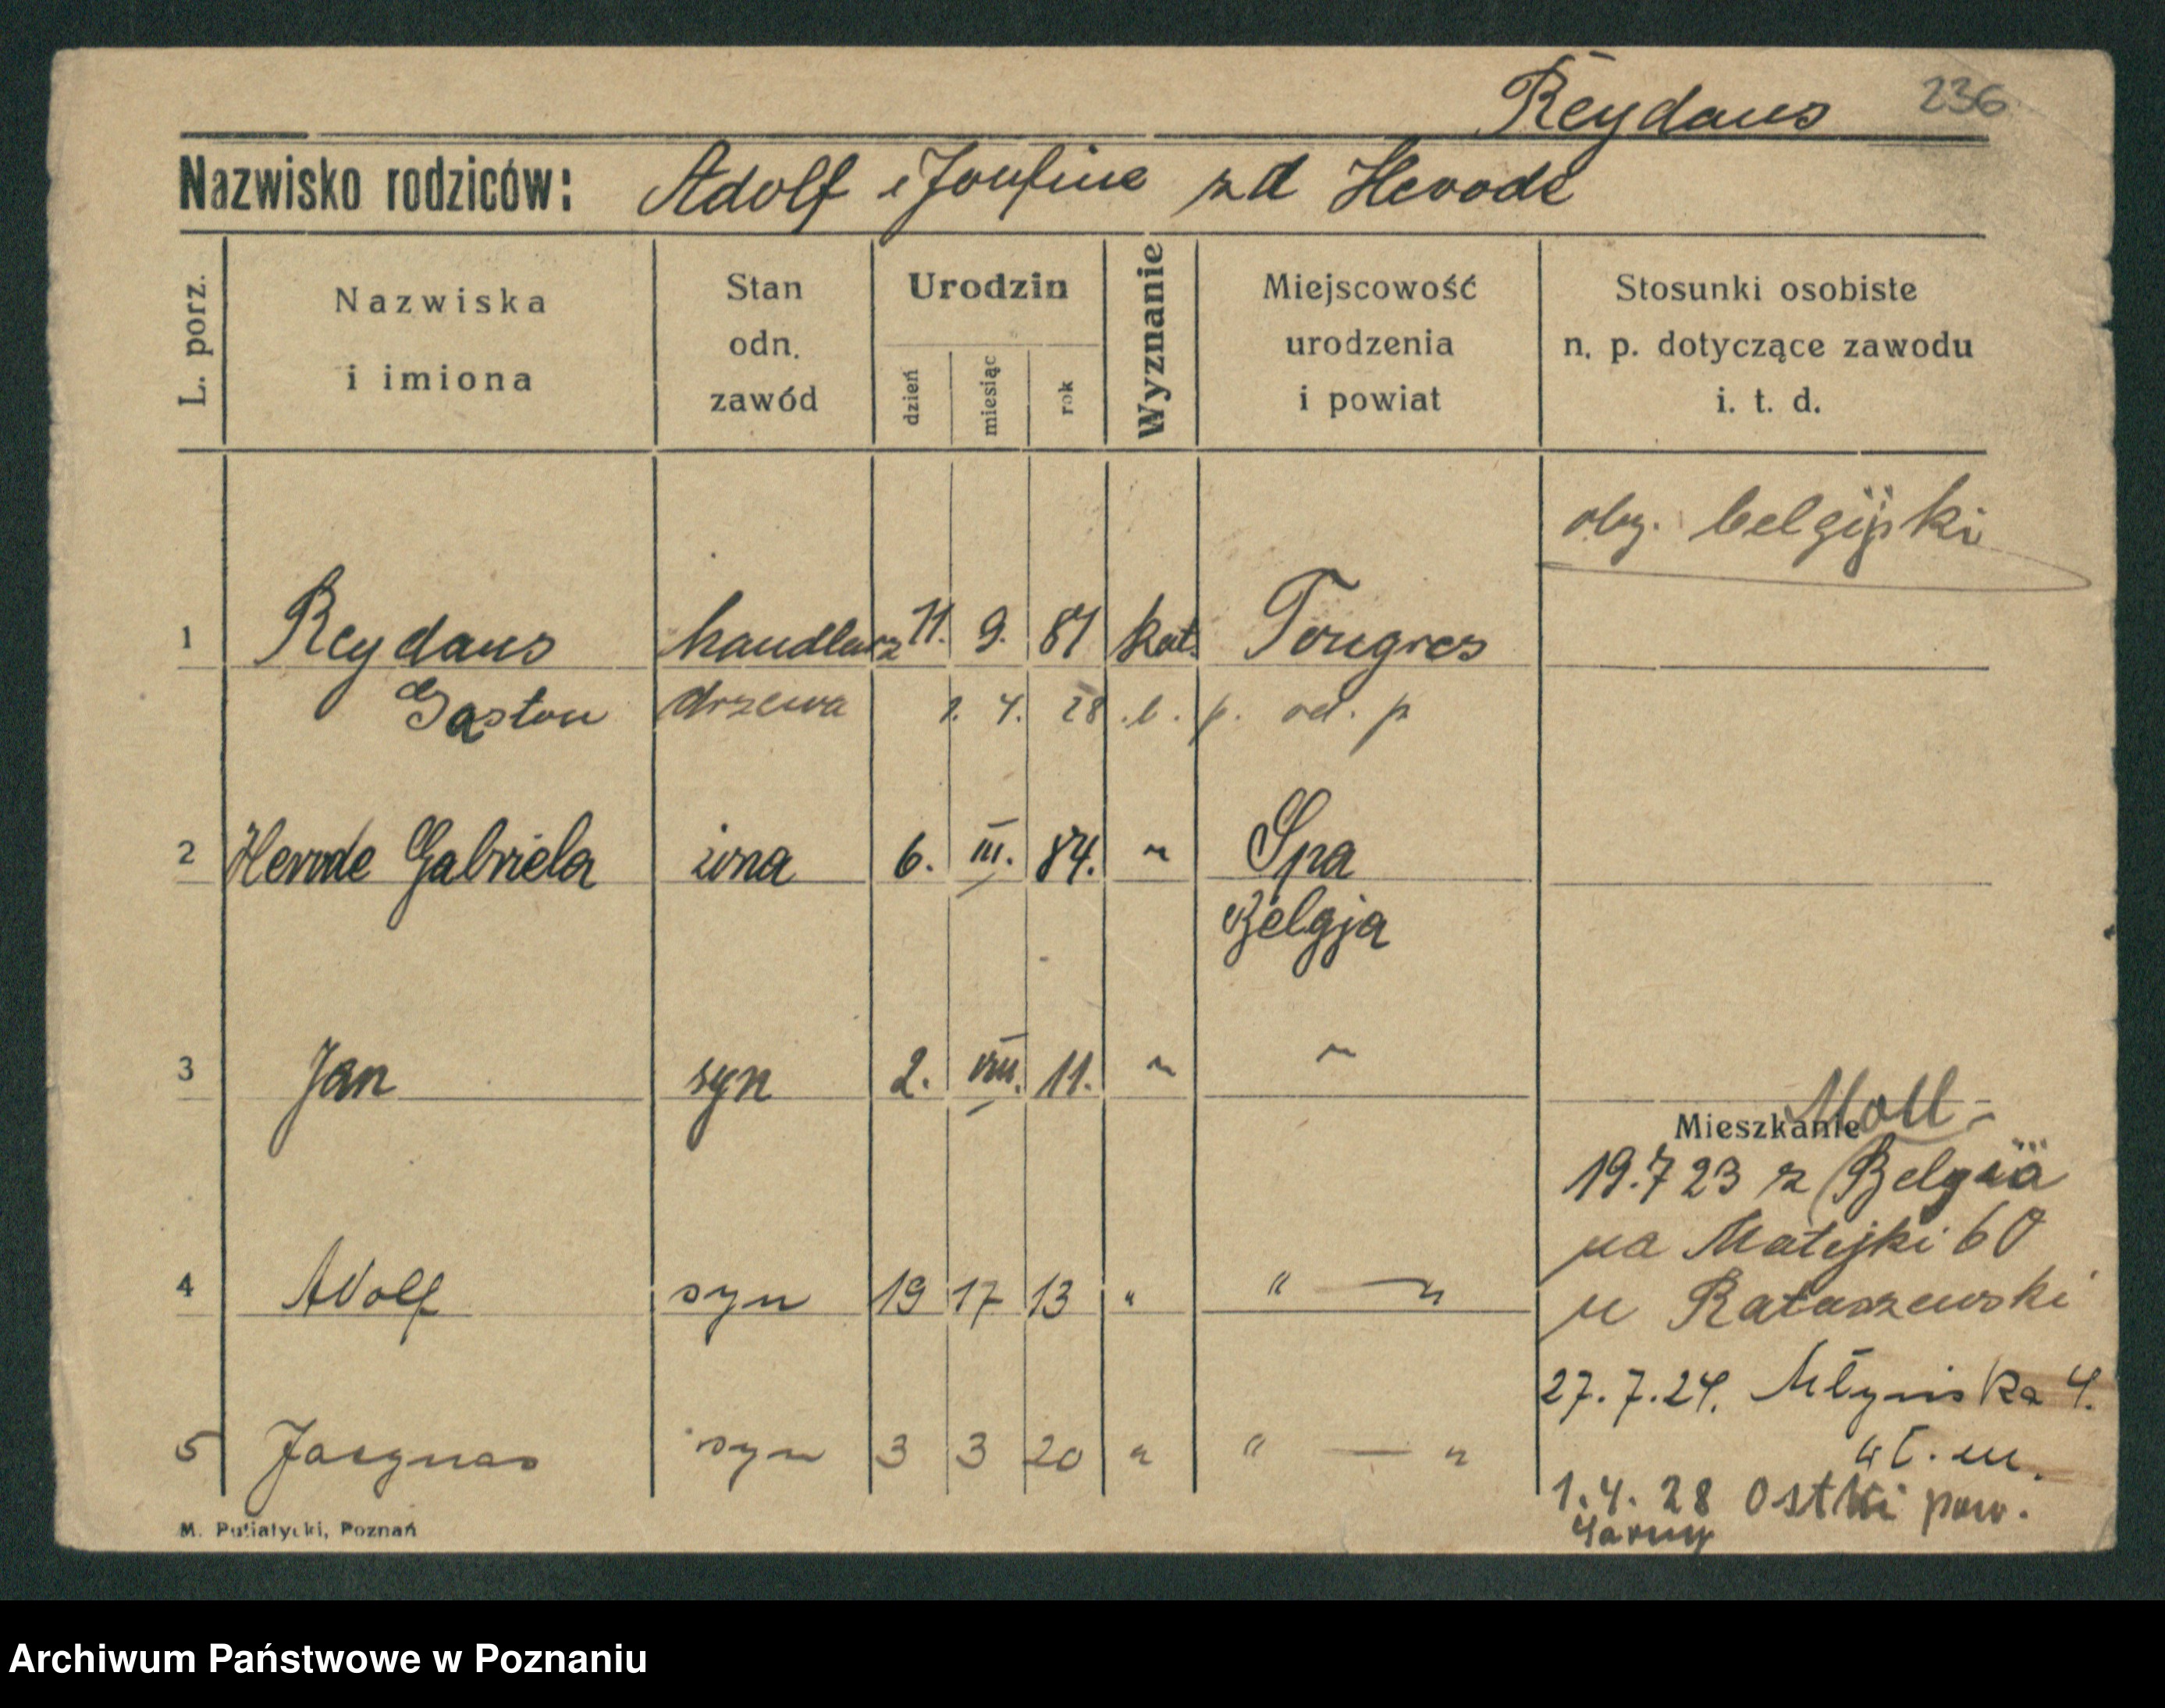 Reydams 236
Nazwisko rodziców: Adolf i Josefine zd Herode
L. porz.
Nazwiska i imiona
Stan odn. zawód
Urodzin
dzień miesiąc rok
Wyznanie
Miejscowość urodzenia i powiat
Stosunki osobiste n. p. dotyczące zawodu i. t. d.
oby. belgijski
1 Reydams handlarz 11. 9. 81 kat. Tongres
Gaston drzewa 1. 4. 28
2 Herode Gabriela żona 6. III. 84. " Spa
Belgja
3 Jan syn 2. VIII. 11. " "
Mieszkanie Moll
4 Adolf syn 19 17 13 " " — "
19.7 23 z Belgia
na Matejki 60
u Rataszewski
27. 7. 24. Młyńska 4.
5 Jacques syn 3 3 20 " " — "
1. 4. 28 Ostki pow.
M. Putiatycki, Poznań
Archiwum Państwowe w Poznaniu